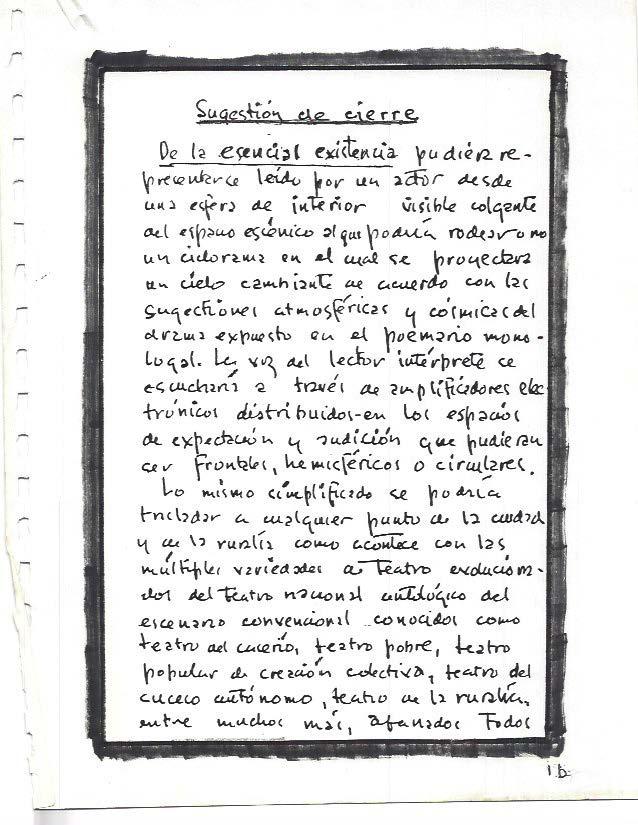 Sugestión de cierre
De la esencial existencia pudiera re-
presentarse leído por un actor desde
una esfera de interior visible colgante
del espacio escénico al que podría rodear o no
un ciclorama en el cual se proyectara
un cielo cambiante de acuerdo con las
sugestiones atmosféricas y cósmicas del
drama expuesto en el poemario mono-
logal. La voz del lector intérprete se
escucharía a través de amplificadores elec-
trónicos distribuidos en los espacios
de expectación y audición que pudieran
ser frontales, hemisféricos o circulares.
Lo mismo simplificado se podría
trasladar a cualquier punto de la ciudad
y de la ruralía como acontece con las
múltiples variedades de Teatro evoluciona-
dos del teatro nacional del
escenario convencional conocidos como
teatro del caserío, teatro pobre, teatro
popular de creación colectiva, teatro del
suceso autónomo, teatro de la ruralía,
entre muchos más, afanados Todos
16